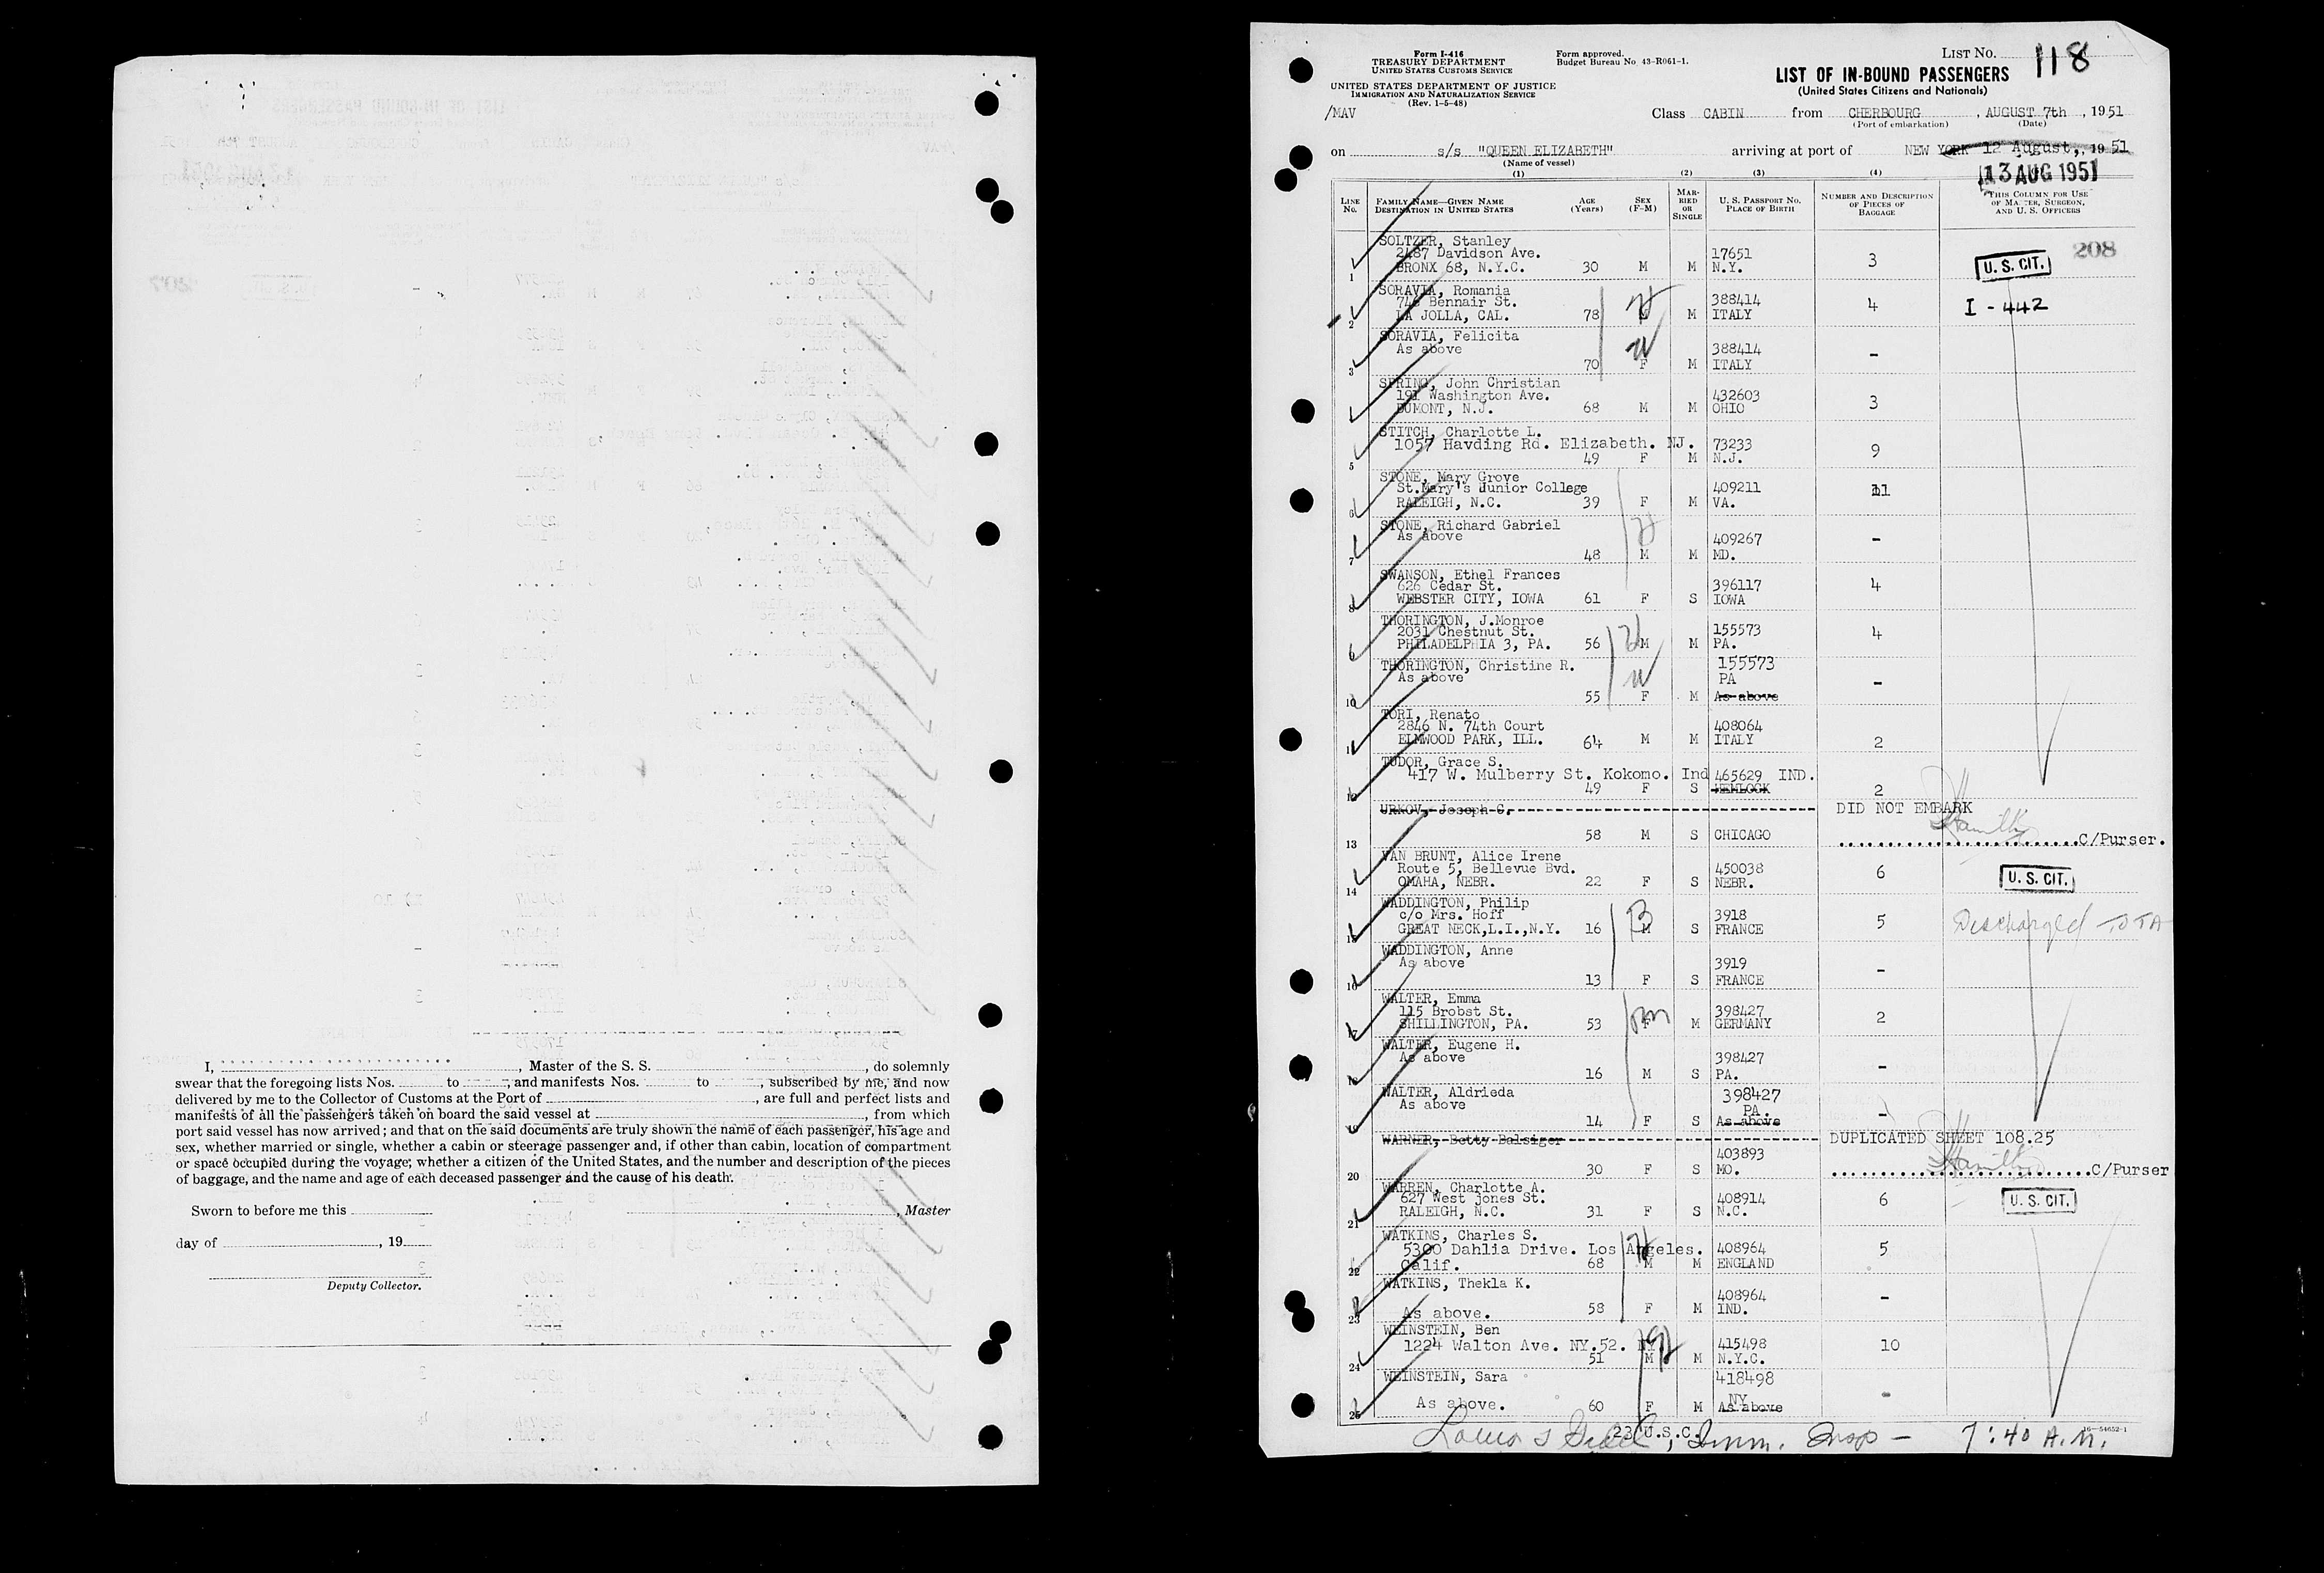 I, ...................., Master of the S. S. ...................., do solemnly
swear that the foregoing lists Nos. ........ to ........, and manifests Nos. ........ to ........, subscribed by me, and now
delivered by me to the Collector of Customs at the Port of ...................., are full and perfect lists and
manifests of all the passengers taken on board the said vessel at ...................., from which
port said vessel has now arrived; and that on the said documents are truly shown the name of each passenger, his age and
sex, whether married or single, whether a cabin or steerage passenger and, if other than cabin, location of compartment
or space occupied during the voyage; whether a citizen of the United States, and the number and description of the pieces
of baggage, and the name and age of each deceased passenger and the cause of his death.
Sworn to before me this ............ ...................., Master
day of ...................., 19......
Deputy Collector.
Form I-416
TREASURY DEPARTMENT
UNITED STATES CUSTOMS SERVICE
Form approved.
Budget Bureau No. 43-R061-1.
LIST No. 118
UNITED STATES DEPARTMENT OF JUSTICE
IMMIGRATION AND NATURALIZATION SERVICE
(Rev. 1-5-48)
LIST OF IN-BOUND PASSENGERS
(United States Citizens and Nationals)
/MAV
Class CABIN from CHERBOURG, AUGUST 7th, 1951
(Port of embarkation) (Date)
on s/s "QUEEN ELIZABETH" arriving at port of NEW YORK 12 August, 1951
(Name of vessel)
13 AUG 1951
(1) (2) (3) (4)
LINE No. FAMILY NAME—GIVEN NAME DESTINATION IN UNITED STATES AGE (Years) SEX (F-M) MARRIED OR SINGLE U. S. PASSPORT No. PLACE OF BIRTH NUMBER AND DESCRIPTION OF PIECES OF BAGGAGE THIS COLUMN FOR USE OF MASTER, SURGEON, AND U. S. OFFICERS
208
SOLTZER, Stanley
2487 Davidson Ave. 17651
1 BRONX 68, N.Y.C. 30 M M N.Y. 3 U. S. CIT.
SORAVIA, Romania
746 Bennair St. 388414
2 LA JOLLA, CAL. 78 M ITALY 4 I - 442
SORAVIA, Felicita
As above 388414
3 70 F M ITALY -
SPRING, John Christian
191 Washington Ave. 432603
DUMONT, N.J. 68 M M OHIO 3
STITCH, Charlotte L.
1057 Havding Rd. Elizabeth. NJ. 73233
5 49 F M N.J. 9
STONE, Mary Grove
St.Mary's Junior College 409211
6 RALEIGH, N.C. 39 F M VA. 11
STONE, Richard Gabriel
As above 409267
7 48 M M MD. -
SWANSON, Ethel Frances
626 Cedar St. 396117
8 WEBSTER CITY, IOWA 61 F S IOWA 4
THORINGTON, J.Monroe
2031 Chestnut St. 155573
9 PHILADELPHIA 3, PA. 56 M M PA. 4
THORINGTON, Christine R. 155573
As above PA
10 55 F M As above -
TORI, Renato
2846 N. 74th Court 408064
11 ELMWOOD PARK, ILL. 64 M M ITALY 2
TUDOR, Grace S.
417 W. Mulberry St. Kokomo. Ind 465629 IND.
12 49 F S HEMLOCK 2
URKOV, Joseph C. DID NOT EMBARK
13 58 M S CHICAGO Hamilton C/Purser.
VAN BRUNT, Alice Irene
Route 5, Bellevue Bvd. 450038
14 OMAHA, NEBR. 22 F S NEBR. 6 U. S. CIT.
WADDINGTON, Philip
c/o Mrs. Hoff 3918
15 GREAT NECK,L.I.,N.Y. 16 M S FRANCE 5 Discharged
WADDINGTON, Anne
As above 3919
16 13 F S FRANCE -
WALTER, Emma
115 Brobst St. 398427
17 SHILLINGTON, PA. 53 F M GERMANY 2
WALTER, Eugene H.
As above 398427
18 16 M S PA. -
WALTER, Aldrieda 398427
As above PA.
19 14 F S As above -
WARNER, Betty Balsiger DUPLICATED SHEET 108.25
403893
20 30 F S MO. Hamilton C/Purser
WARREN, Charlotte A.
627 West Jones St. 408914
21 RALEIGH, N.C. 31 F S N.C. 6 U. S. CIT.
WATKINS, Charles S.
5300 Dahlia Drive. Los Angeles. 408964 5
22 Calif. 68 M M ENGLAND
WATKINS, Thekla K.
408964
23 As above. 58 F M IND. -
WEINSTEIN, Ben
1224 Walton Ave. NY.52. NY. 415498 10
24 51 M M N.Y.C.
WEINSTEIN, Sara 418498
NY
25 As above. 60 F M As above -
23 U.S.C. , Imm. Insp - 7:40 A.M.
16—54652-1